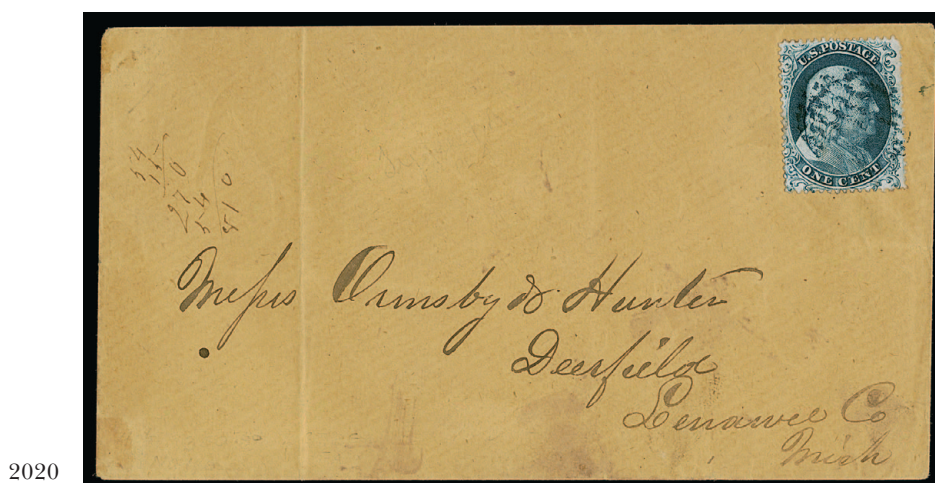 U.S. POSTAGE
ONE CENT
54
15
270
54
810
Messrs Ormsby & Hunter
Deerfield
Lenawee Co
Mich
2020